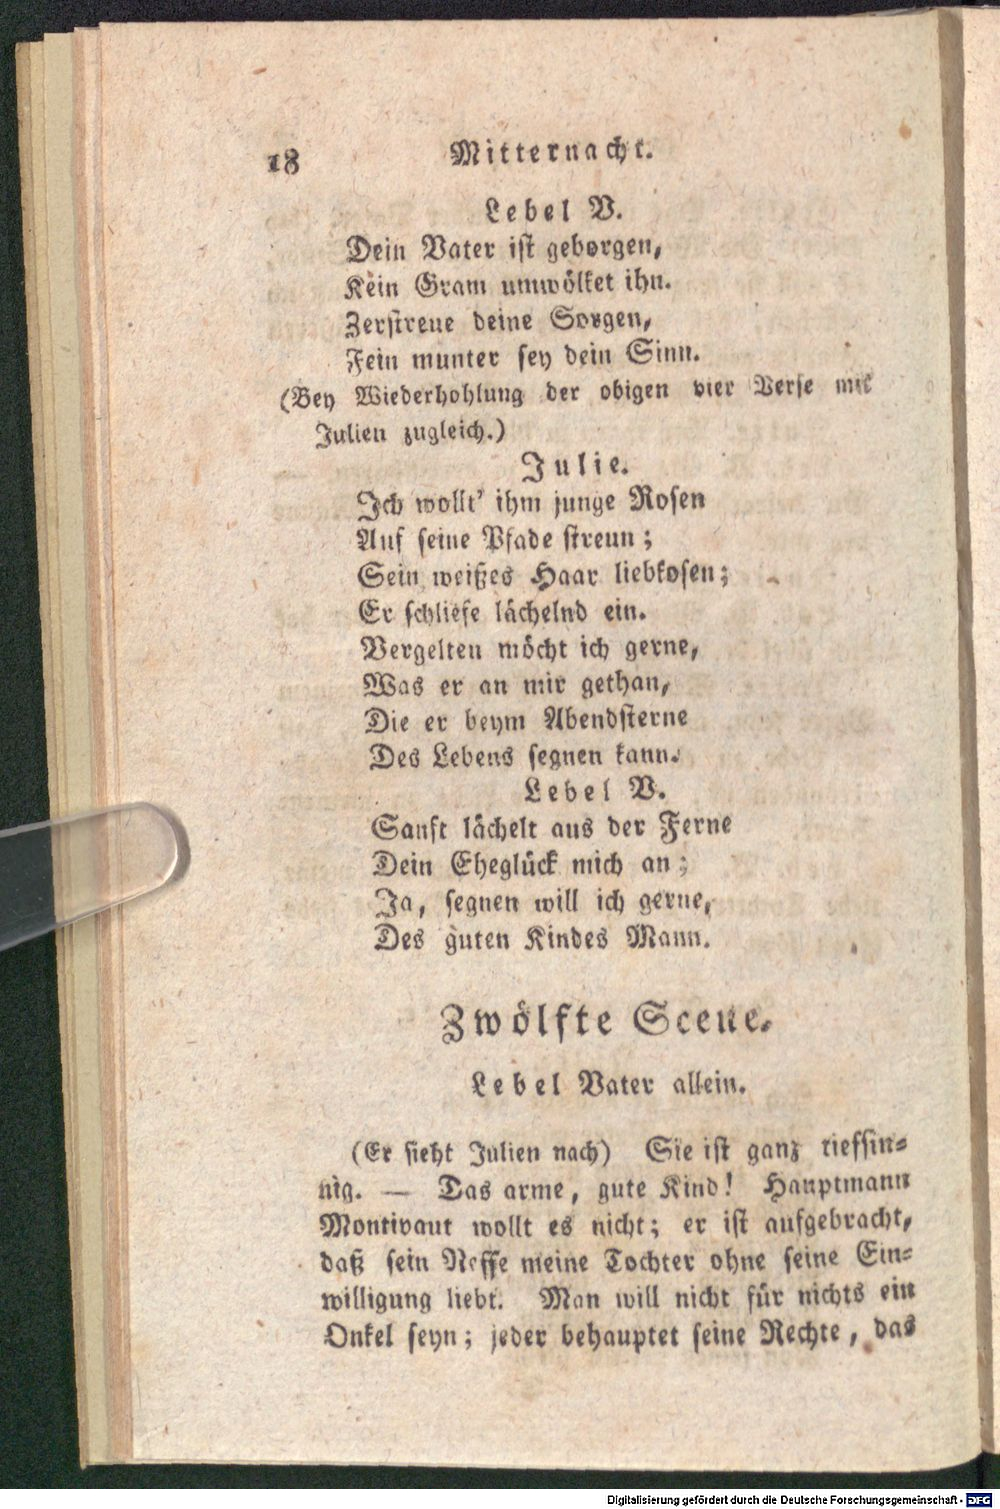 18
Mitternacht.
Lebel V.
Dein Vater ist geborgen,
Kein Gram umwölket ihn.
Zerstreue deine Sorgen,
Fein munter sey dein Sinn.
(Bey Wiederhohlung der obigen vier Verse mit
Julien zugleich.)
Julie.
Ich wollt' ihm junge Rosen
Auf seine Pfade streun;
Sein weißes Haar liebkosen;
Er schliefe lächelnd ein.
Vergelten möcht ich gerne,
Was er an mir gethan,
Die er beym Abendsterne
Des Lebens segnen kann.
Lebel V.
Sanft lächelt aus der Ferne
Dein Eheglück mich an;
Ja, segnen will ich gerne,
Des guten Kindes Mann.
Zwölfte Scene.
Lebel Vater allein.
(Er sieht Julien nach) Sie ist ganz tiefsin-
nig. — Das arme, gute Kind! Hauptmann
Montivaut wollt es nicht; er ist aufgebracht,
daß sein Neffe meine Tochter ohne seine Ein-
willigung liebt. Man will nicht für nichts ein
Onkel seyn; jeder behauptet seine Rechte, das
Digitalisierung gefördert durch die Deutsche Forschungsgemeinschaft - DFG